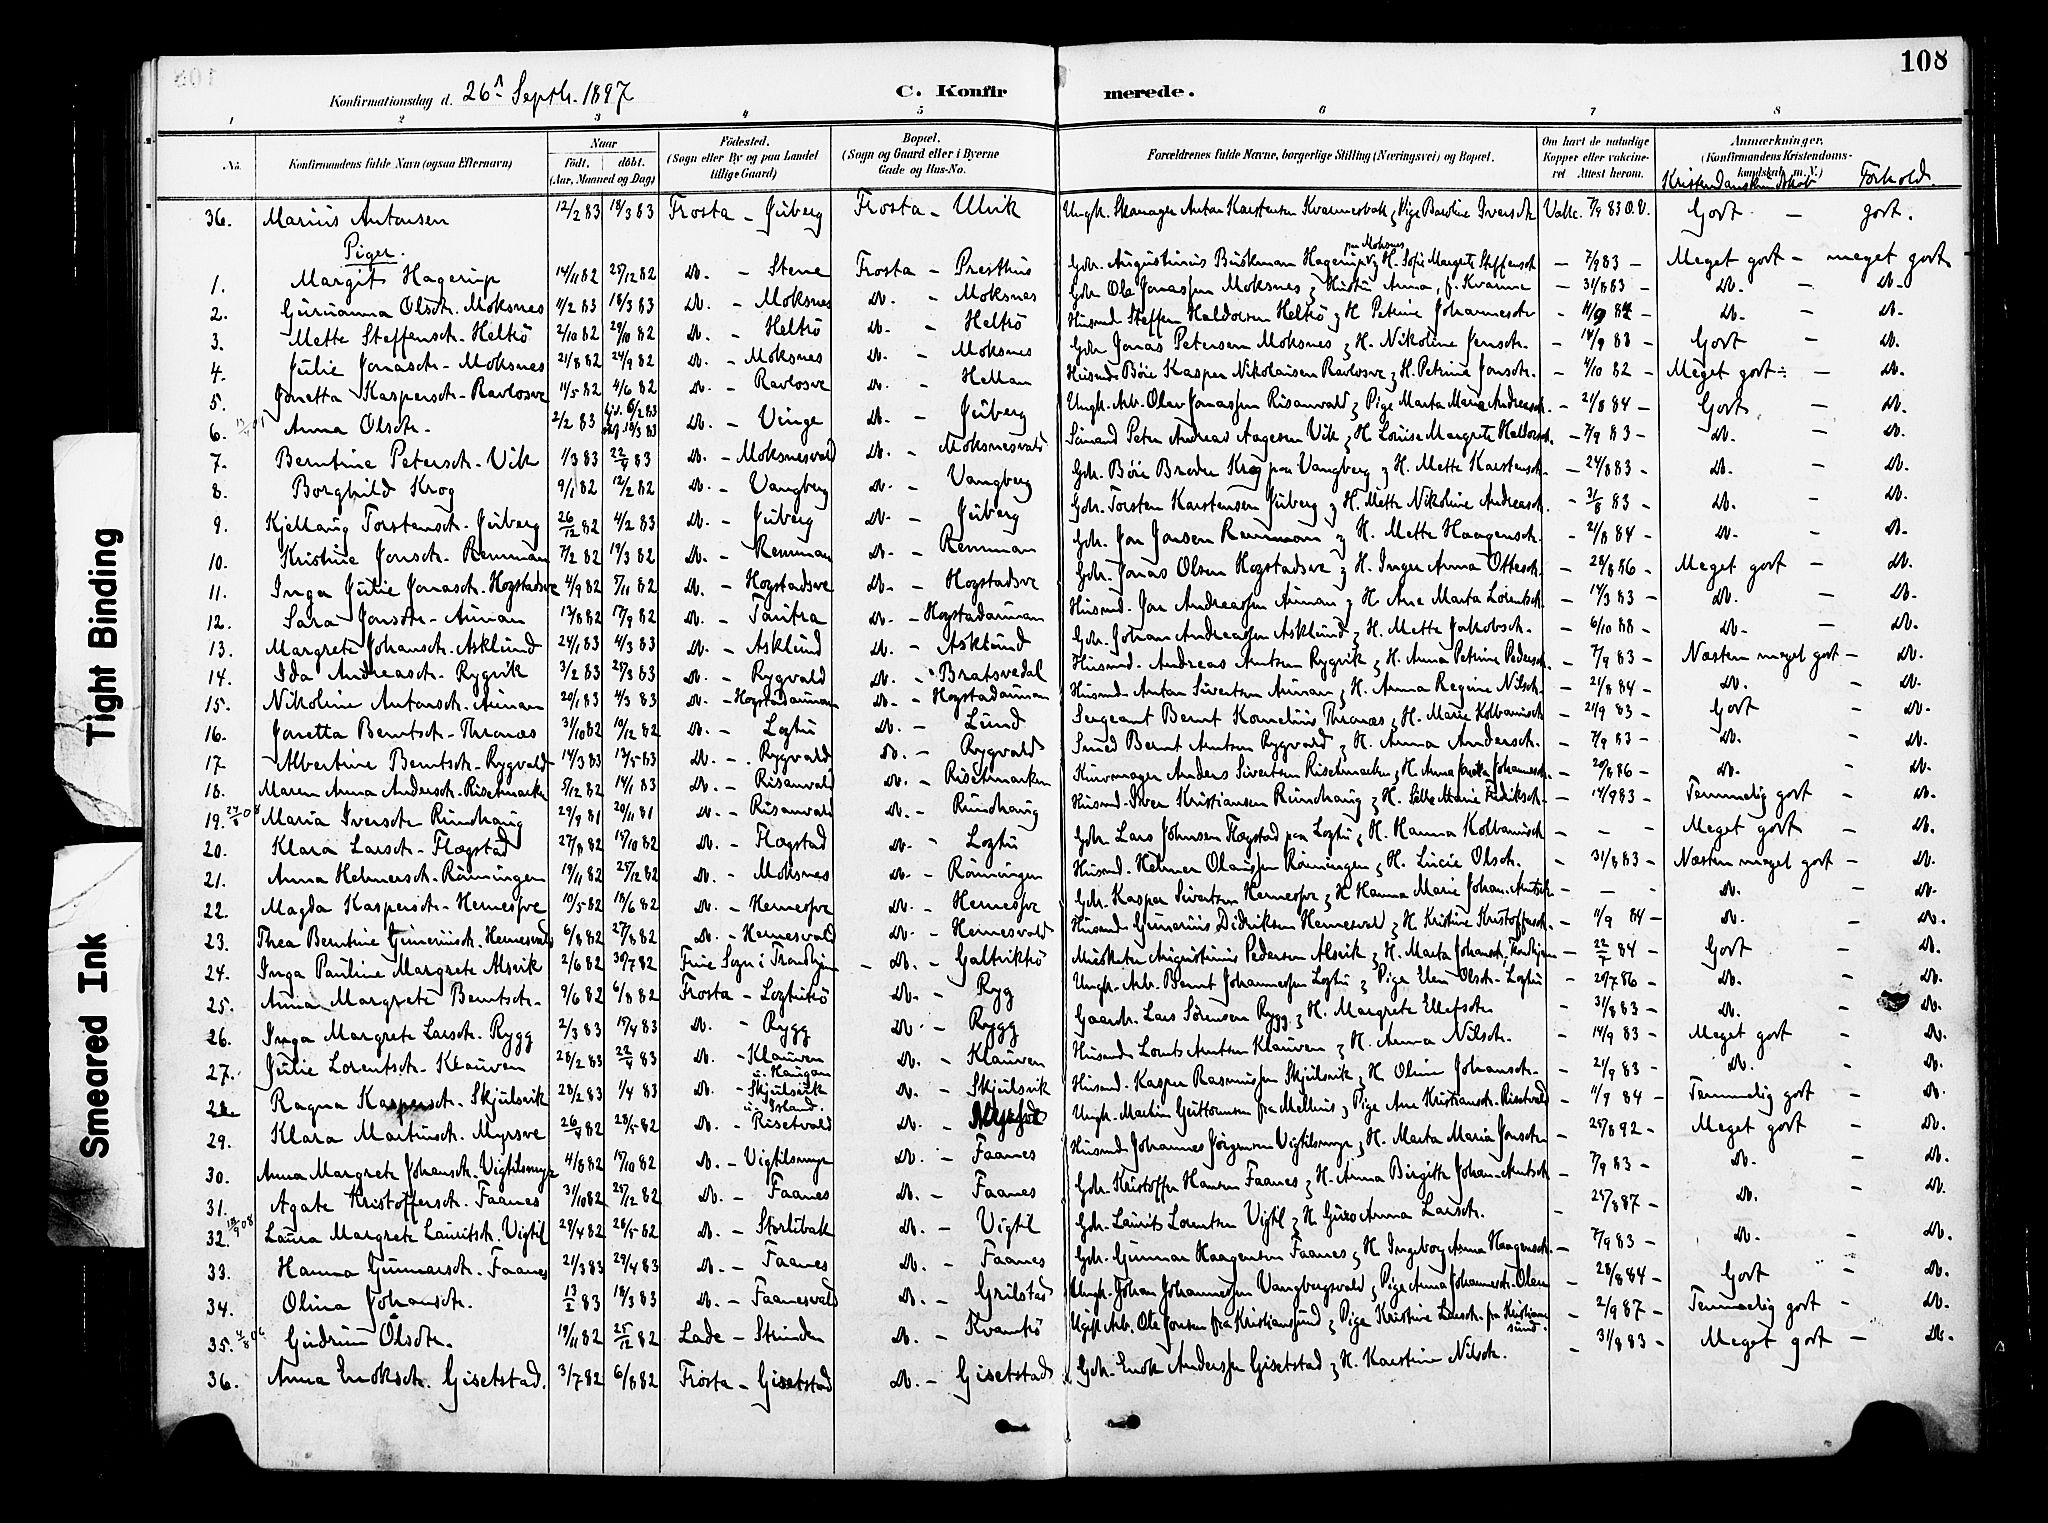 108
Konfirmationsdag d. 26n Septb. 1897 C. Konfirmerede.
1 2 3 4 5 6 7 8
No. Konfirmandens fulde Navn (ogsaa Efternavn) Naar Födt, döbt. (Aar, Maaned og Dag) Födested. (Sogn eller By og paa Landet tillige Gaard) Bopæl. (Sogn og Gaard eller i Byerne Gade og Hus-No. Forældrenes fulde Navne, borgerlige Stilling (Næringsvei) og Bopæl. Om havt de naturlige Kopper eller vaccineret Attest herom. Anmærkninger. (Konfirmandens Kristendomskundskab m. V.)
Kristendomskundskab Forhold.
36. Marius Antonsen 12/2 83 18/3 83 Frosta - Juberg Frosta - Ulvik Ungk. Skomager Anton Karstensen Kvamesbak & Pige Baroline Iversdt. Vakc. 7/9 83 O.V. Godt - godt.
Piger.
1. Margit Hagerup 14/11 82 25/12 82 Do. - Stene Frosta - Presthus Gdbr. Augustinus Buskman Hagerup paa Moksnes & H. Sofie Margrete Steffensdt - 7/9 83 - Meget godt - meget godt
2. Gurianna Olsdt. Moksnes 11/2 83 18/3 83 Do. - Moksnes Do. - Moksnes Gdbr Ole Jonassen Moksnes & Hustru Anna, f. Kvamme - 31/8 83 - Do. - Do.
3. Mette Steffensdt. Heltrö 2/10 82 29/10 82 Do. - Heltrö Do. - Heltrö Husmd Steffen Haldorsen Heltrö & H Petrine Johannesdt - 11/9 84 - Do. - Do.
4. Julie Jonasdt. Moksnes 21/8 82 24/9 82 Do. - Moksnes Do. - Moksnes Gdbr Jonas Petersen Moksnes & H. Nikoline Jensdt. - 14/9 83 - Godt - Do.
5. Jonetta Kaspersdt. Ravlosve 11/5 82 4/6 82 Do. - Ravlosve Do. - Hellan Husmd Böie Kasper Nikolaisen Ravlosve & H. Petrine Jonsdt. - 4/10 82 - Meget godt ÷ - Do.
6. Anna Olsdt. 2/2 83 Do. - Vinge Do. - Juberg Ungk. Arb. Olav Jonassen Risanvald & Pige Marta Maria Andreasdt. - 21/8 84 - Godt - Do.
7. Berntine Petersdt. Vik 1/3 83 22/4 83 Do. - Moksnesvald Do. - Moksnesvald Sömand Peter Andreas Aagesen Vik & H Louise Margrete Haldorsdt. - 7/9 83 - Do. - Do.
8. Borghild Krog 9/1 82 12/2 82 Do. - Vangberg Do. - Vangberg Gdbr. Böie Broder Krog paa Vangberg & H. Mette Karstensdt. - 24/8 83 - Do. - Do.
9. Kjellaug Torstensdt. Juberg 26/12 82 4/2 83 Do. - Juberg Do. - Juberg Gdbr. Torsten Karstensen Juberg & H. Mette Nikoline Andreasdt. - 31/8 83 - Do. - Do.
10. Kristine Jonsdt. Remman 7/2 82 19/3 82 Do. - Remman Do. - Remman Gdbr. Jon Jonsen Remman & H. Mette Haagensdt. - 21/8 84 - Do. - Do.
11. Inga Julie Jonasdt. Hogstadsve 4/9 82 5/11 82 Do. - Hogstadsve Do. - Hogstadsve Gdbr. Jonas Olsen Hogstadsve & H. Inger Anna Ottesdt. - 28/8 86 - Meget godt - Do.
12. Sara Jonsdt. Aunan 13/8 82 17/9 82 Do. - Tautra Do. - Hogstadaunan Husmd. Jon Andreassen Aunan & H Ane Marta Lorentsdt. - 14/3 83 - Do. - Do.
13. Margrete Johansdt. Asklund 24/1 83 4/3 83 Do. - Asklund Do. - Asklund Gdbr. Johan Andreassen Asklund & H. Mette Jakobsdt. - 6/10 88 - Do. - Do.
14. Ida Andreasdt. Rygvik 3/2 83 25/3 83 Do. - Rygvald Do. - Bratsvedal Husmd. Andreas Arntsen Rygvik & H. Anna Petrine Pedersdt. - 7/9 83 - Næsten meget godt - Do.
15. Nikoline Antonsdt. Aunan 20/1 83 4/3 83 Do. - Hogstadaunan Do. - Hogstadaunan Husmd Anton Sivertsen Aunan & H. Anna Regine Nilsdt. - 21/8 84 - Do. - Do.
16. Jonetta Berntsdt. Thronæs 31/10 82 10/12 82 Do. - Logtu Do. - Lund Sergeant Bernt Kornelius Thronæs & H. Marie Kolbanusdt - 21/9 83 - Godt - Do.
17 Albertine Berntsdt. Rygvald 14/3 83 13/5 83 Do. - Rygvald Do. - Rygvald Smed Bernt Arntsen Rygvald & H. Anna Andersdt. - 7/9 83 - Do. - Do.
18. Maren Anna Andersdt. Risetmarken 5/12 82 14/1 83 Do. - Risanvald Do. - Risetmarken Kurvmager Anders Sivertsen Risetmarken & H. Anna Jonetta Johannesdt. - 20/8 86 - Do. - Do.
19. Maria Iversdt. Rundhaug 29/9 81 20/11 81 Do. - Risanvald Do. - Rundhaug Husmd. Iver Kristiansen Rundhaug & H. Marie Fredriksdt. - 14/9 83 - Temmelig godt - Do.
20. Klara Larsdt. Flægstad 27/8 82 15/10 82 Do. - Flægstad Do. - Logtu Gdbr. Lars Johnsen Flægstad paa Logtu & H. Hanna Kolbanusdt - - - Meget godt - Do.
21. Anna Helmersdt. Rönningen 19/11 82 25/12 82 Do. - Moksnes Do. - Rönningen Husmd. Helmer Olaussen Rönningen & H. Lucie Olsdt. - 31/8 83 - Næsten meget godt - Do.
22. Magda Kaspersdt. Hernesøre 10/5 82 18/6 82 Do. - Hernesøre Do. - Hernesøre Gdbr. Kasper Sivertsen Hernesøre & H Hanna Marie Johan-Arntsdt - - - Do. - Do.
23. Thea Berntine Gunerius dt. Hernesvald 6/8 82 27/8 82 Do. - Hernesvald Do. - Hernesvald Husmd Gunerius Didriksen Hernesvald & H Kristine Kristoffersdt. - 11/9 84 - Do. - Do.
24. Inga Pauline Margrete Alsvik 2/6 82 30/7 82 Frue Sogn i Trondhjem - Do. - Galtviktrö Musketer Augustinus Pedersen Alsvik & H. Marta Johansdt, Trondhjem - 22/ 84 - Godt - Do.
25. Anna Margrete Berntsdt. 9/6 82 6/8 82 Frosta - Logtutrö Do. - Ryg Ungk. Arb. Bernt Johannessen Logtu & Pige Elen Olsdt. Logtu - 20/7 86 - Do. - Do.
26. Inga Margrete Larsdt. Rygg 2/3 83 15/4 83 Do. - Rygg Do. - Rygg Gaardbr. Lars Sörensen Rygg & H. Margrete Ellefsdt. - 31/8 83 - Do. - Do.
27. Julie Lorentsdt. Klauven 28/2 83 22/4 83 Do. - Klauven u. Haugan Do. - Klauven Husmd Lorents Arntsen Klauven & H. Anna Nilsdt. - 14/9 83 - Meget godt - Do.
28. Ragna Kaspersdt. Skjulsvik 28/2 83 1/4 83 Do. - Skjulsvik Do. - Skjulsvik Husmd. Kasper Rasmussen Skjulsvik & H. Oline Johansdt. - 21/9 83 - Do. - Do.
29. Klara Martinsdt. Myrsve 26/4 82 28/5 82 Do. - Risetvald Do. - Ungk. Martin Guttormsen fra Melhus & Pige Ane Kristiansdt. Risetvald - 11/9 84 - Temmelig godt - Do.
30. Anna Margrete Johansdt. Vigtilsmyr 4/8 82 15/10 82 Do. - Vigtilsmyr Do. - Faanes Husmd Johannes Jörgensen Vigtilsmyr & H. Marta Maria Jonsdt. - 25/8 92 - Meget godt - Do.
31. Agate Kristoffersdt. Faanes 31/10 82 25/12 82 Do. - Faanes Do. - Faanes Gdbr. Kristoffer Hansen Faanes & H. Anna Birgitte Johan-Arntsdt - 7/9 83 - Do. - Do.
32. Laura Margrete Lauritsdt. Vigtil 29/4 82 28/5 82 Do. - Storlibak Do. - Vigtil Gdbr. Laurits Lorentsen Vigtil & H Guro Anna Larsdt. - 25/8 87 - Do. - Do.
33. Hanna Gunnarsdt. Faanes 21/3 83 29/4 83 Do. - Faanes Do. - Faanes Gdbr. Gunnar Haagensen Faanes & H Ingeborg Anna Haagensdt. - 7/9 83 - Do. - Do.
34. Olina Johansdt. 13/2 83 18/3 83 Do. - Faanesvald Do. - Grilstad Ungk. Johan Johannessen Vangbergsvald & Pige Anna Johannesdt. - 28/8 84 - Godt - Do.
35. Gudrun Olsdt. 19/11 82 25/12 82 Lade - Strinden Do. - Kvamtrö Ugk Arb. Ole Jonsen fra Kristianssund & Pige Kristine Larsdt. fra Kristianssund. - 2/9 87 - Temmelig godt - Do.
36. Anna Enoksdt. Gisetstad. 3/7 82 6/8 82 Frosta - Gisetstad Do. - Gisetstad Gdbr. Enok Anderssen Gisetstad & H. Karstine Nilsdt. - 31/8 83 - Meget godt - Do.
Tight Binding
Smeared Ink